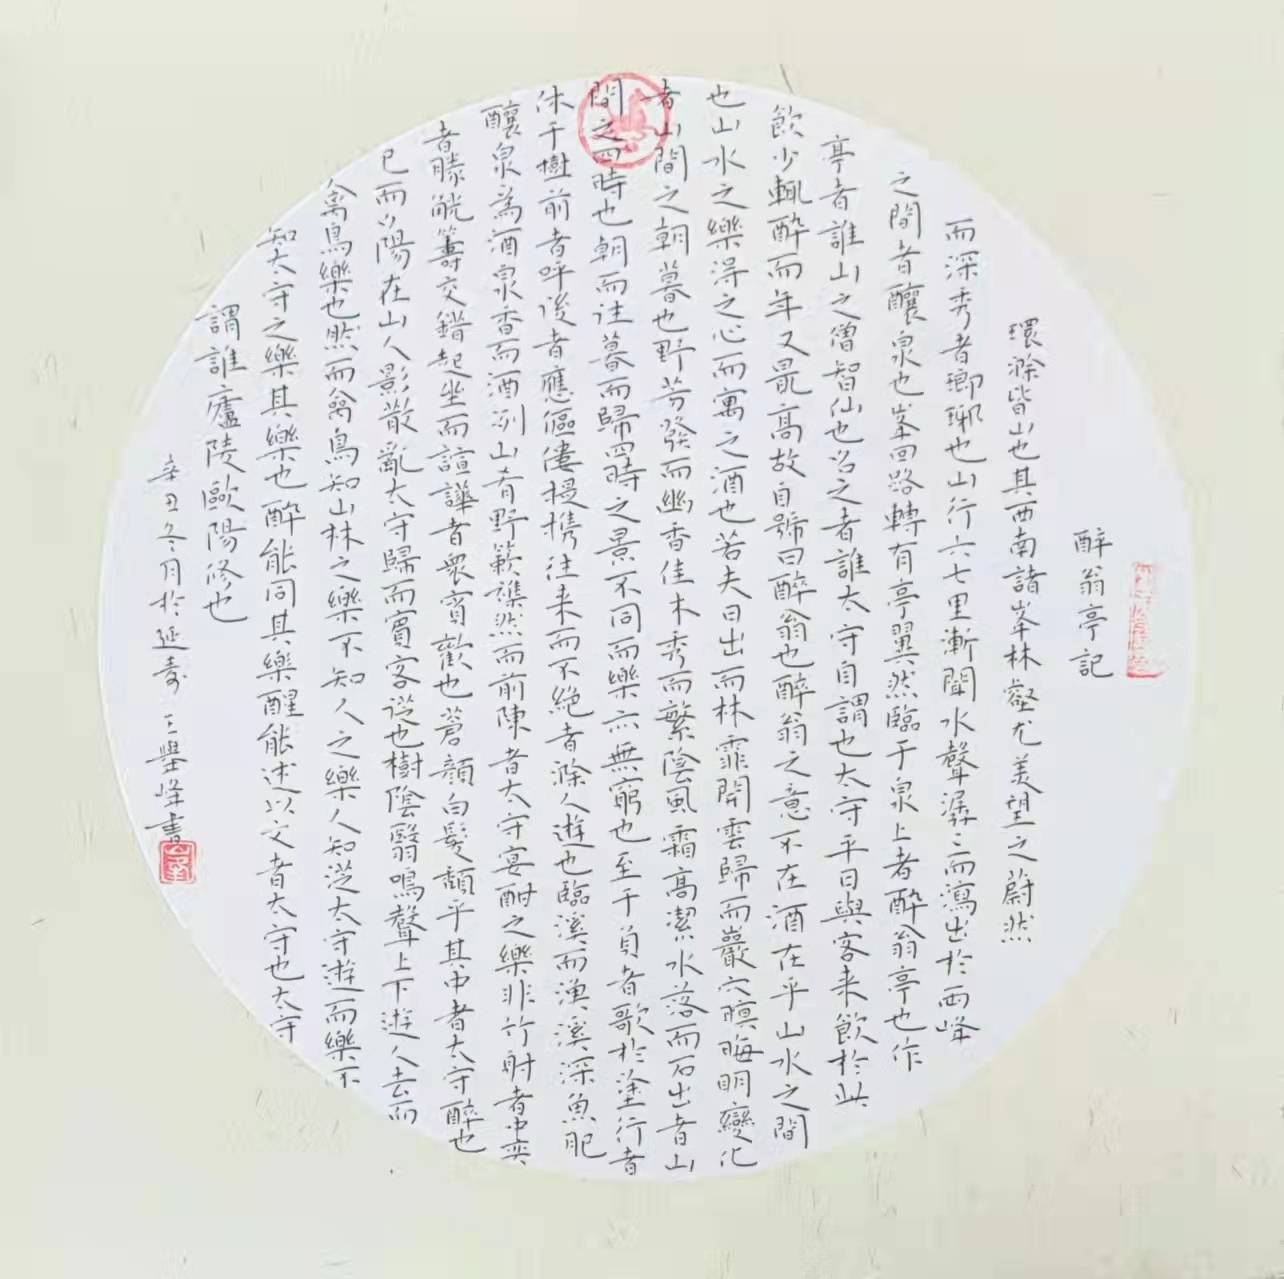 醉翁亭記
環滁皆山也其西南諸峯林壑尤美望之蔚然
而深秀者瑯琊也山行六七里漸聞水聲潺ミ而瀉出於兩峰
之間者釀泉也峯回路轉有亭翼然臨于泉上者醉翁亭也作
亭者誰山之僧智仙也名之者誰太守自謂也太守平日與客来飲於此
飲少輒醉而年又最高故自號曰醉翁也醉翁之意不在酒在乎山水之間
也山水之樂淂之心而寓之酒也若夫日出而林霏開雲歸而巖穴暝晦明變化
者山間之朝暮也野芳發而幽香佳木秀而繁陰風霜高潔水落而石出者山
間之四時也朝而往暮而歸四時之景不同而樂亦無窮也至于負者歌於塗行者
休于樹前者呼後者應傴僂提携往来而不絶者滁人遊也臨溪而漁溪深魚肥
釀泉為酒泉香而酒洌山肴野蔌襍然而前陳者太守宴酣之樂非竹射者中奕
者勝觥籌交錯起坐而諠譁者衆賓歡也蒼顔白髮頹乎其中者太守醉也
已而夕陽在山人影散亂太守歸而賓客從也樹陰翳鳴聲上下遊人去而
禽鳥樂也然而禽鳥知山林之樂不知人之樂人知從太守遊而樂不
知太守之樂其樂也醉能同其樂醒能述以文者太守也太守
謂誰廬陵歐陽修也
辛丑冬月於延壽王舉峰書